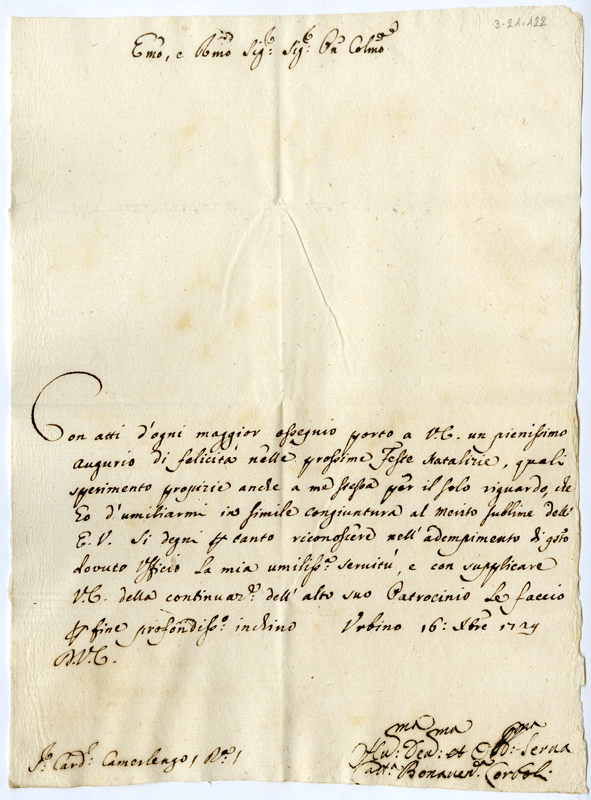 3-21-122
Emo, e Rmo Sig.r Sig.r Pn Colmo
Con atti d'ogni maggior ossequio porto a V.E. un pienissimo
augurio di felicità nelle prossime Feste Natalizie, quali
sperimento propizie anche a me stessa per il solo riguardo, che
Eo d'umiliarmi in simile congiuntura al merito sublime dell'
E.V. Si degni ptanto riconoscere nell'adempimento di qsto
dovuto Ufficio la mia umiliss.a servitù, e con supplicare
V.E. della continuaz.e dell'alto suo Patrocinio le faccio
p fine profondiss.o inchino Urbino 16: Xbre 1729
D.V.E.
S.r Card.l Camerlengo
Hu:ma Dev:ma et Obb:ma Serva
Bonaven.a Corboli